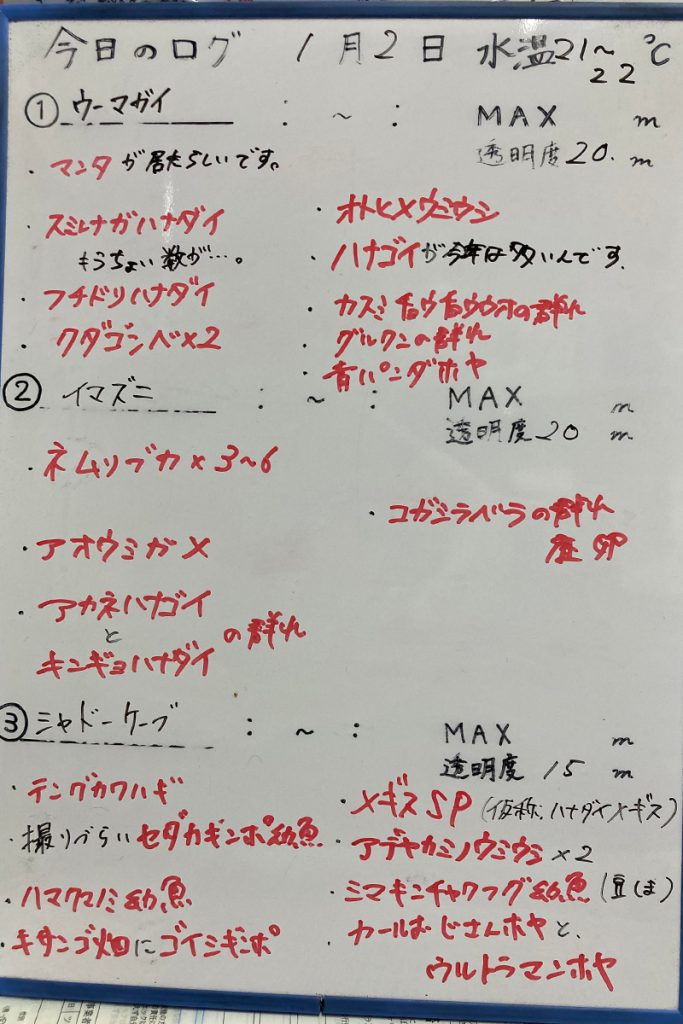 今日のログ 1月2日 水温21~22℃
① ウーマガイ : ~ : MAX m
透明度20. m
・マンタが居たらしいです。
・スミレナガハナダイ
もうちょい数が…。
・フチドリハナダイ
・クダゴンベ×2
・オトヒメウミウシ
・ハナゴイが今年は多いんです.
・カスミチョウチョウウオの群れ
・グルクンの群れ
・青パンダホヤ
② イマズニ : ~ : MAX m
透明度20 m
・ネムリブカ×3~6
・アオウミガメ
・アカネハナゴイ
と
キンギョハナダイ の群れ
・コガシラベラの群れ
産卵
③ シャドーケーブ : ~ : MAX m
透明度 15 m
・テングカワハギ
・撮りづらいセダカギンポ幼魚
・ハマクマノミ幼魚
・キサンゴ畑にゴイシギンポ
・メギスSP(仮称.ハナダイメギス)
・アデヤカミノウミウシ×2
・シマキンチャクフグ幼魚(豆しま)
・カールおじさんホヤと、
ウルトラマンホヤ